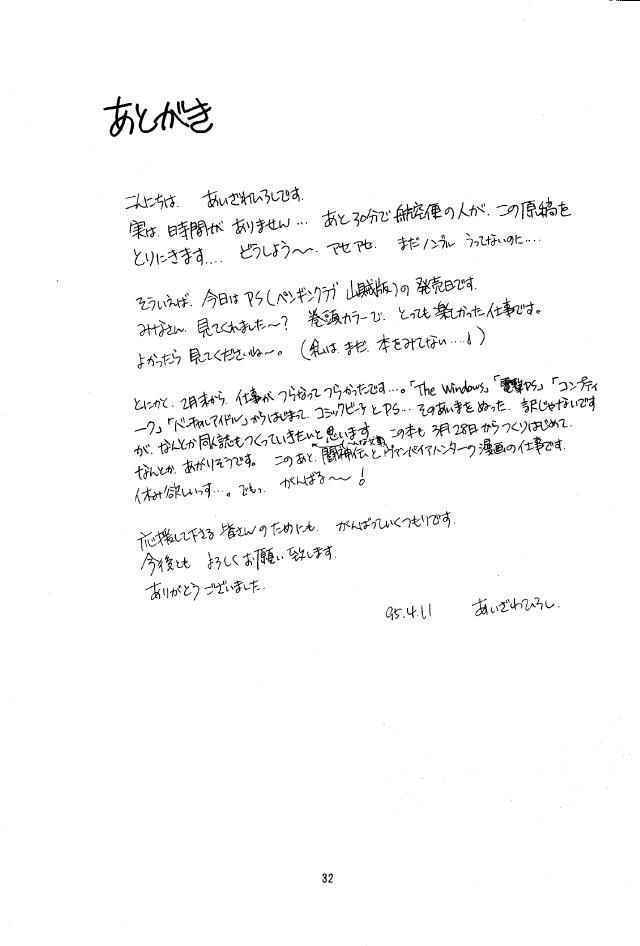 あとがき
こんにちは あいざわひろしです.
実は 時間が ありません… あと30分で 航空便の人が. この原稿を
とりにきます…. どうしよう〜. アセアセ. まだノンブル うってないのに….
そういえば. 今日は PS(ペンギンクラブ 山賊版)の 発売日です.
みなさん. 見てくれました〜? 巻頭カラーで. とっても 楽しかった 仕事です。
よかったら 見てくださいね〜。 (私は まだ. 本をみてない….!)
とにかく. 2月末から. 仕事が つらなって つらかったです…。「The Windows」「電撃PS」「コンプティ
ーク」「バーチャルアイドル」からはじまって. コミックピー子とPS… そのあいまをぬった. 訳じゃないです
が. なんとか 同人誌も つくっていきたいと 思います. この本も 3月28日からつくりはじめて.
なんとか. あがりそうです。 このあと. 闘神伝とヴァンパイアハンターの漫画の仕事です.
休み欲しいっす…。でもっ. がんばる〜!
応援して下さる 皆さんのためにも. がんばっていくつもりです.
今後とも よろしくお願い致します.
ありがとうございました.
95.4.11 あいざわひろし.
32